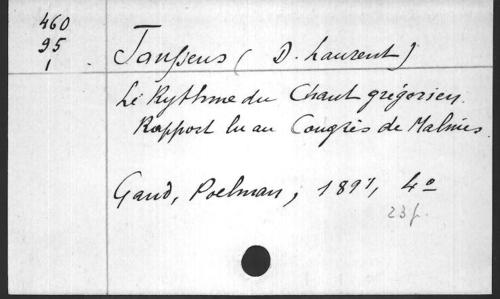 460
95
1
Janssens (D. Laurent)
Le Rythme du Chant grégorien.
Rapport lu au Congrès de Malines.
Gand, Poelman, 1891, 4º
23 p.